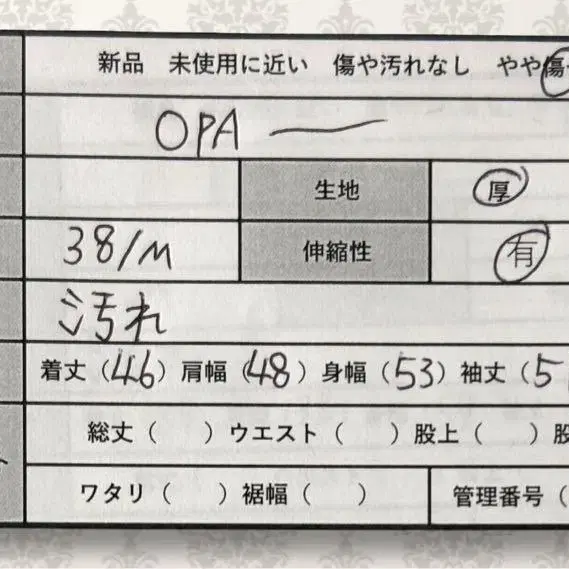 新品 未使用に近い 傷や汚れなし やや傷
OPA
生地 厚
38/M 伸縮性 有
汚れ
着丈（46）肩幅（48）身幅（53）袖丈（5
総丈（ ）ウエスト（ ）股上（ ）股
ワタリ（ ）裾幅（ ） 管理番号（